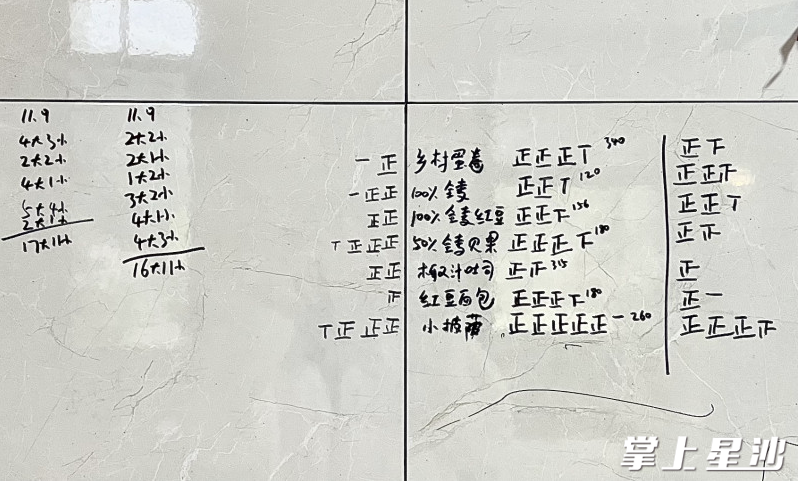 11.9
4大3小
2大2小
4大1小
5大4小
2大1小
17大11小
11.9
2大2小
2大1小
1大2小
3大2小
4大1小
4大3小
16大11小
一正 乡村黑卷 正正正T 340 正下
一正正 100%全麦 正正T 120 正正正
正正 100%全麦红豆 正正下 156 正正T
T正正正 50%全麦贝果 正正正下 180 正正
正正 板汁吐司 正正 315 正
正 红豆面包 正正正下 180 正一
T正正正 小披萨 正正正正正一 260 正正正正
掌上星沙